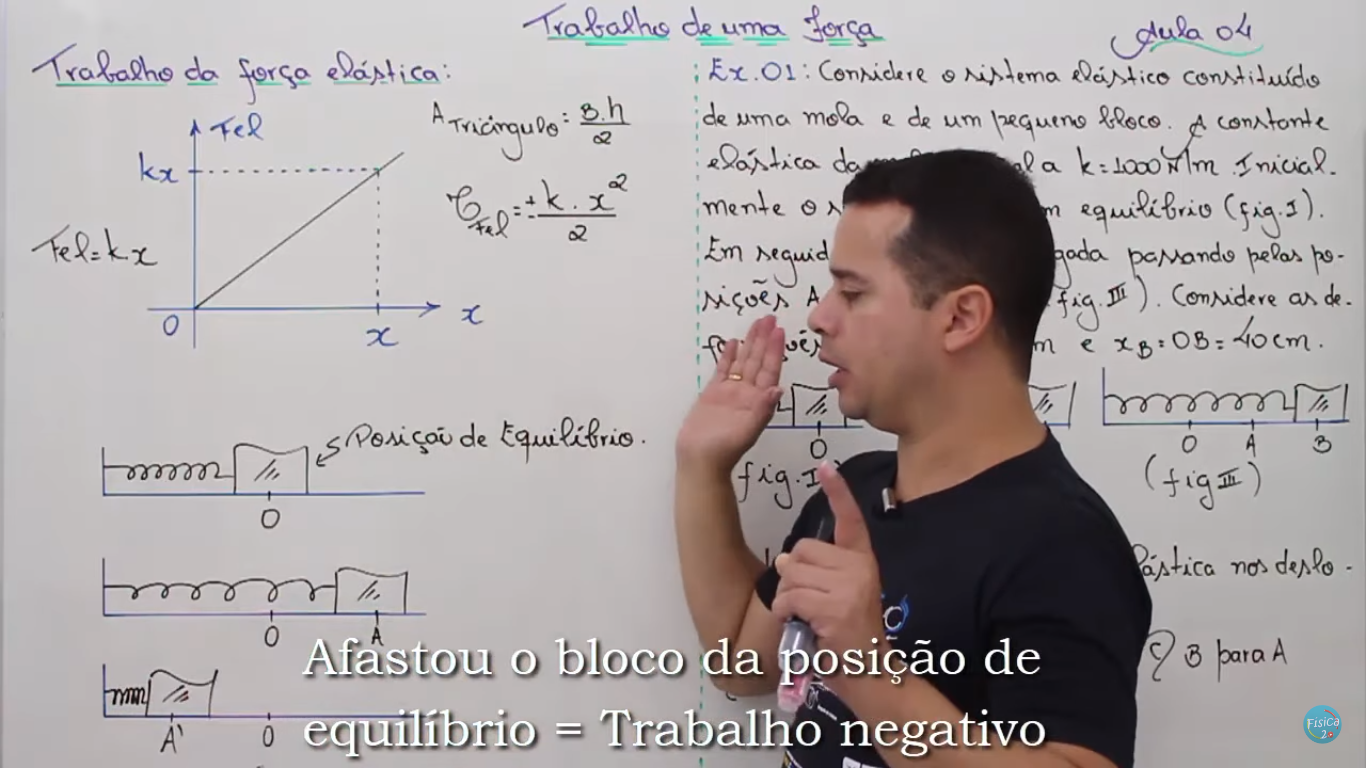 Trabalho de uma força
Aula 04
Trabalho da força elástica:
Fel
kx
Fel=k.x
0
x
x
A Triângulo: B.h
2
τFel=± k.x²
2
Posição de Equilíbrio.
O
O A
A' O
Ex.01: Considere o sistema elástico constituído
de uma mola e de um pequeno bloco. A constante
elástica da al a k=1000N/m. Inicial-
mente o equilíbrio (fig.I).
Em seguid passando pelas po-
sições A fig.III). Considere as de-
e xB=OB=40cm.
O
O A B
(fig.I
(fig III)
ástica nos deslo-
B para A
Afastou o bloco da posição de
equilíbrio = Trabalho negativo
Física
2.0